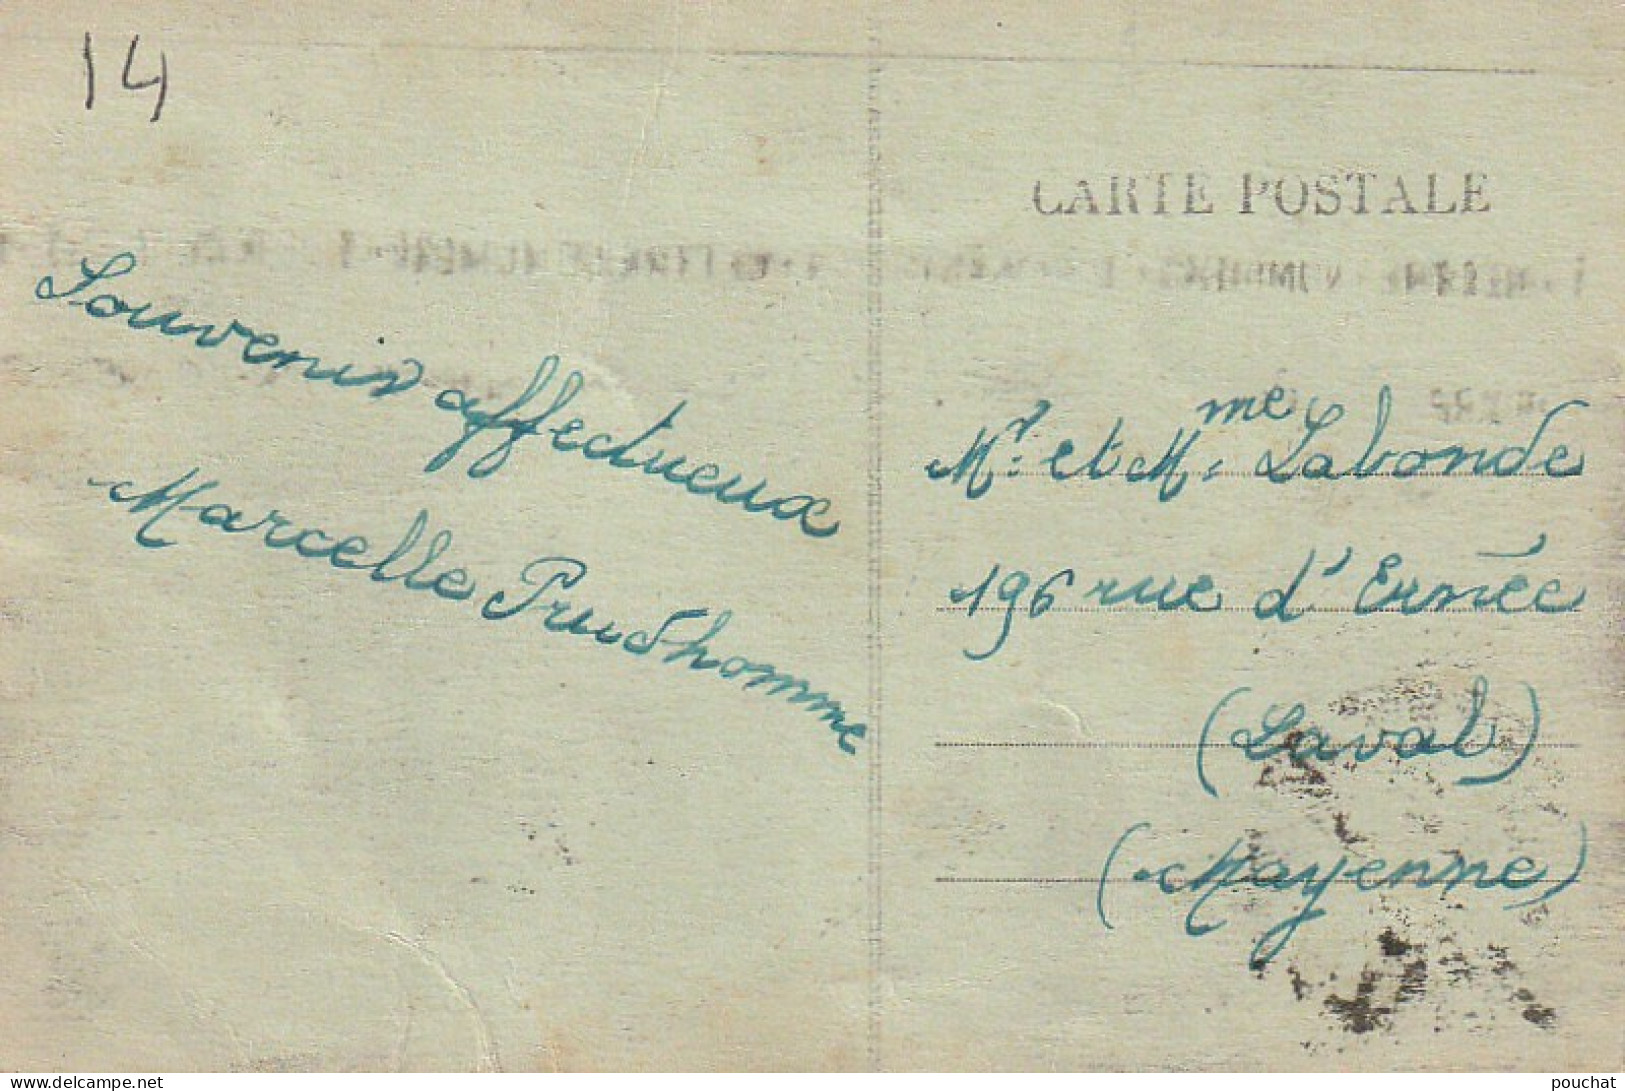 14
CARTE POSTALE
Souvenir affectueux
Marcelle Prudhomme
Mr. et Mme Labonde
196 rue d'Ernée
(Laval)
(Mayenne)
delcampe.net
pouchat